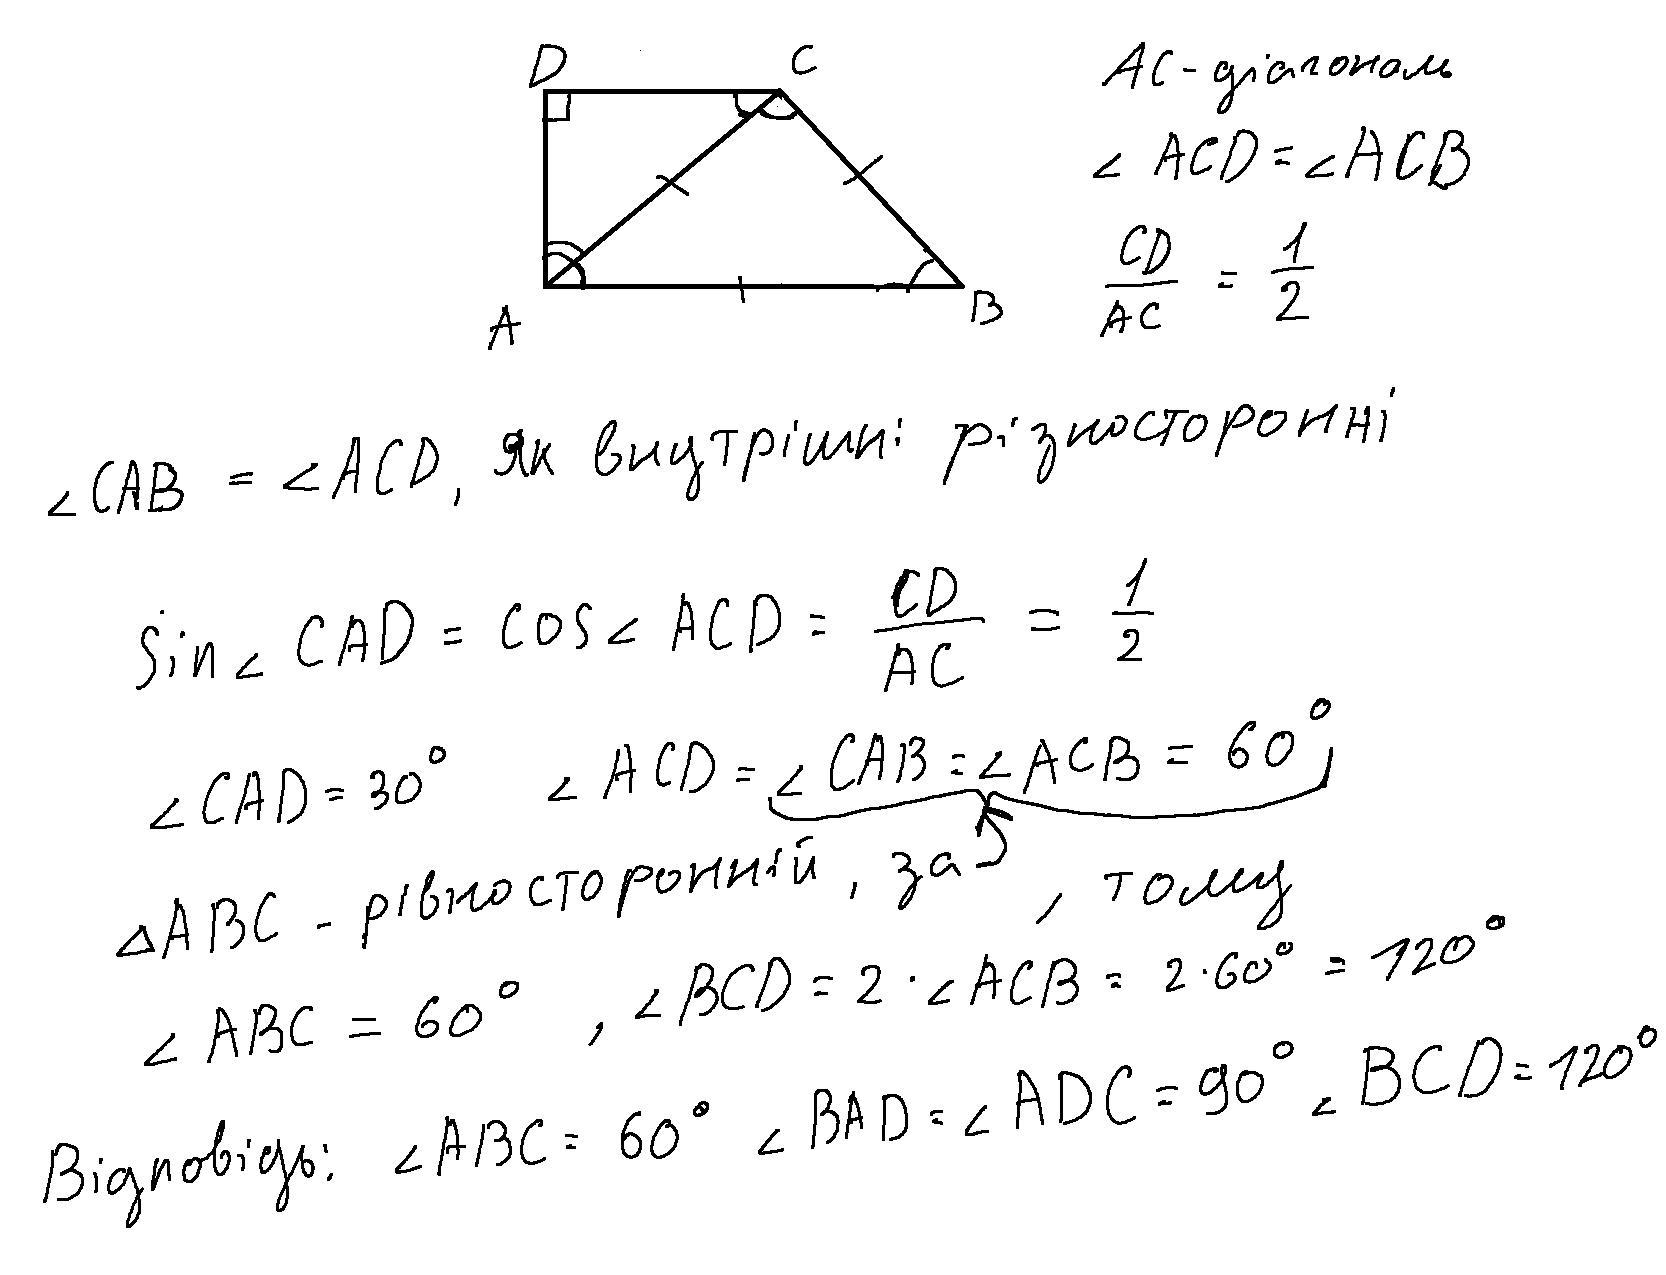 D C
A B
AC-діагональ
∠ ACD = ∠ACB
CD/AC = 1/2
∠CAB = ∠ACD, як внутрішні різносторонні
Sin∠ CAD = COS∠ ACD = CD/AC = 1/2
∠CAD = 30° ∠ ACD = ∠CAB = ∠ACB = 60°
△ABC - рівносторонній, за , тому
∠ ABC = 60°, ∠BCD = 2 · ∠ACB = 2·60° = 120°
Відповідь: ∠ABC = 60° ∠BAD = ∠ADC = 90° ∠BCD = 120°